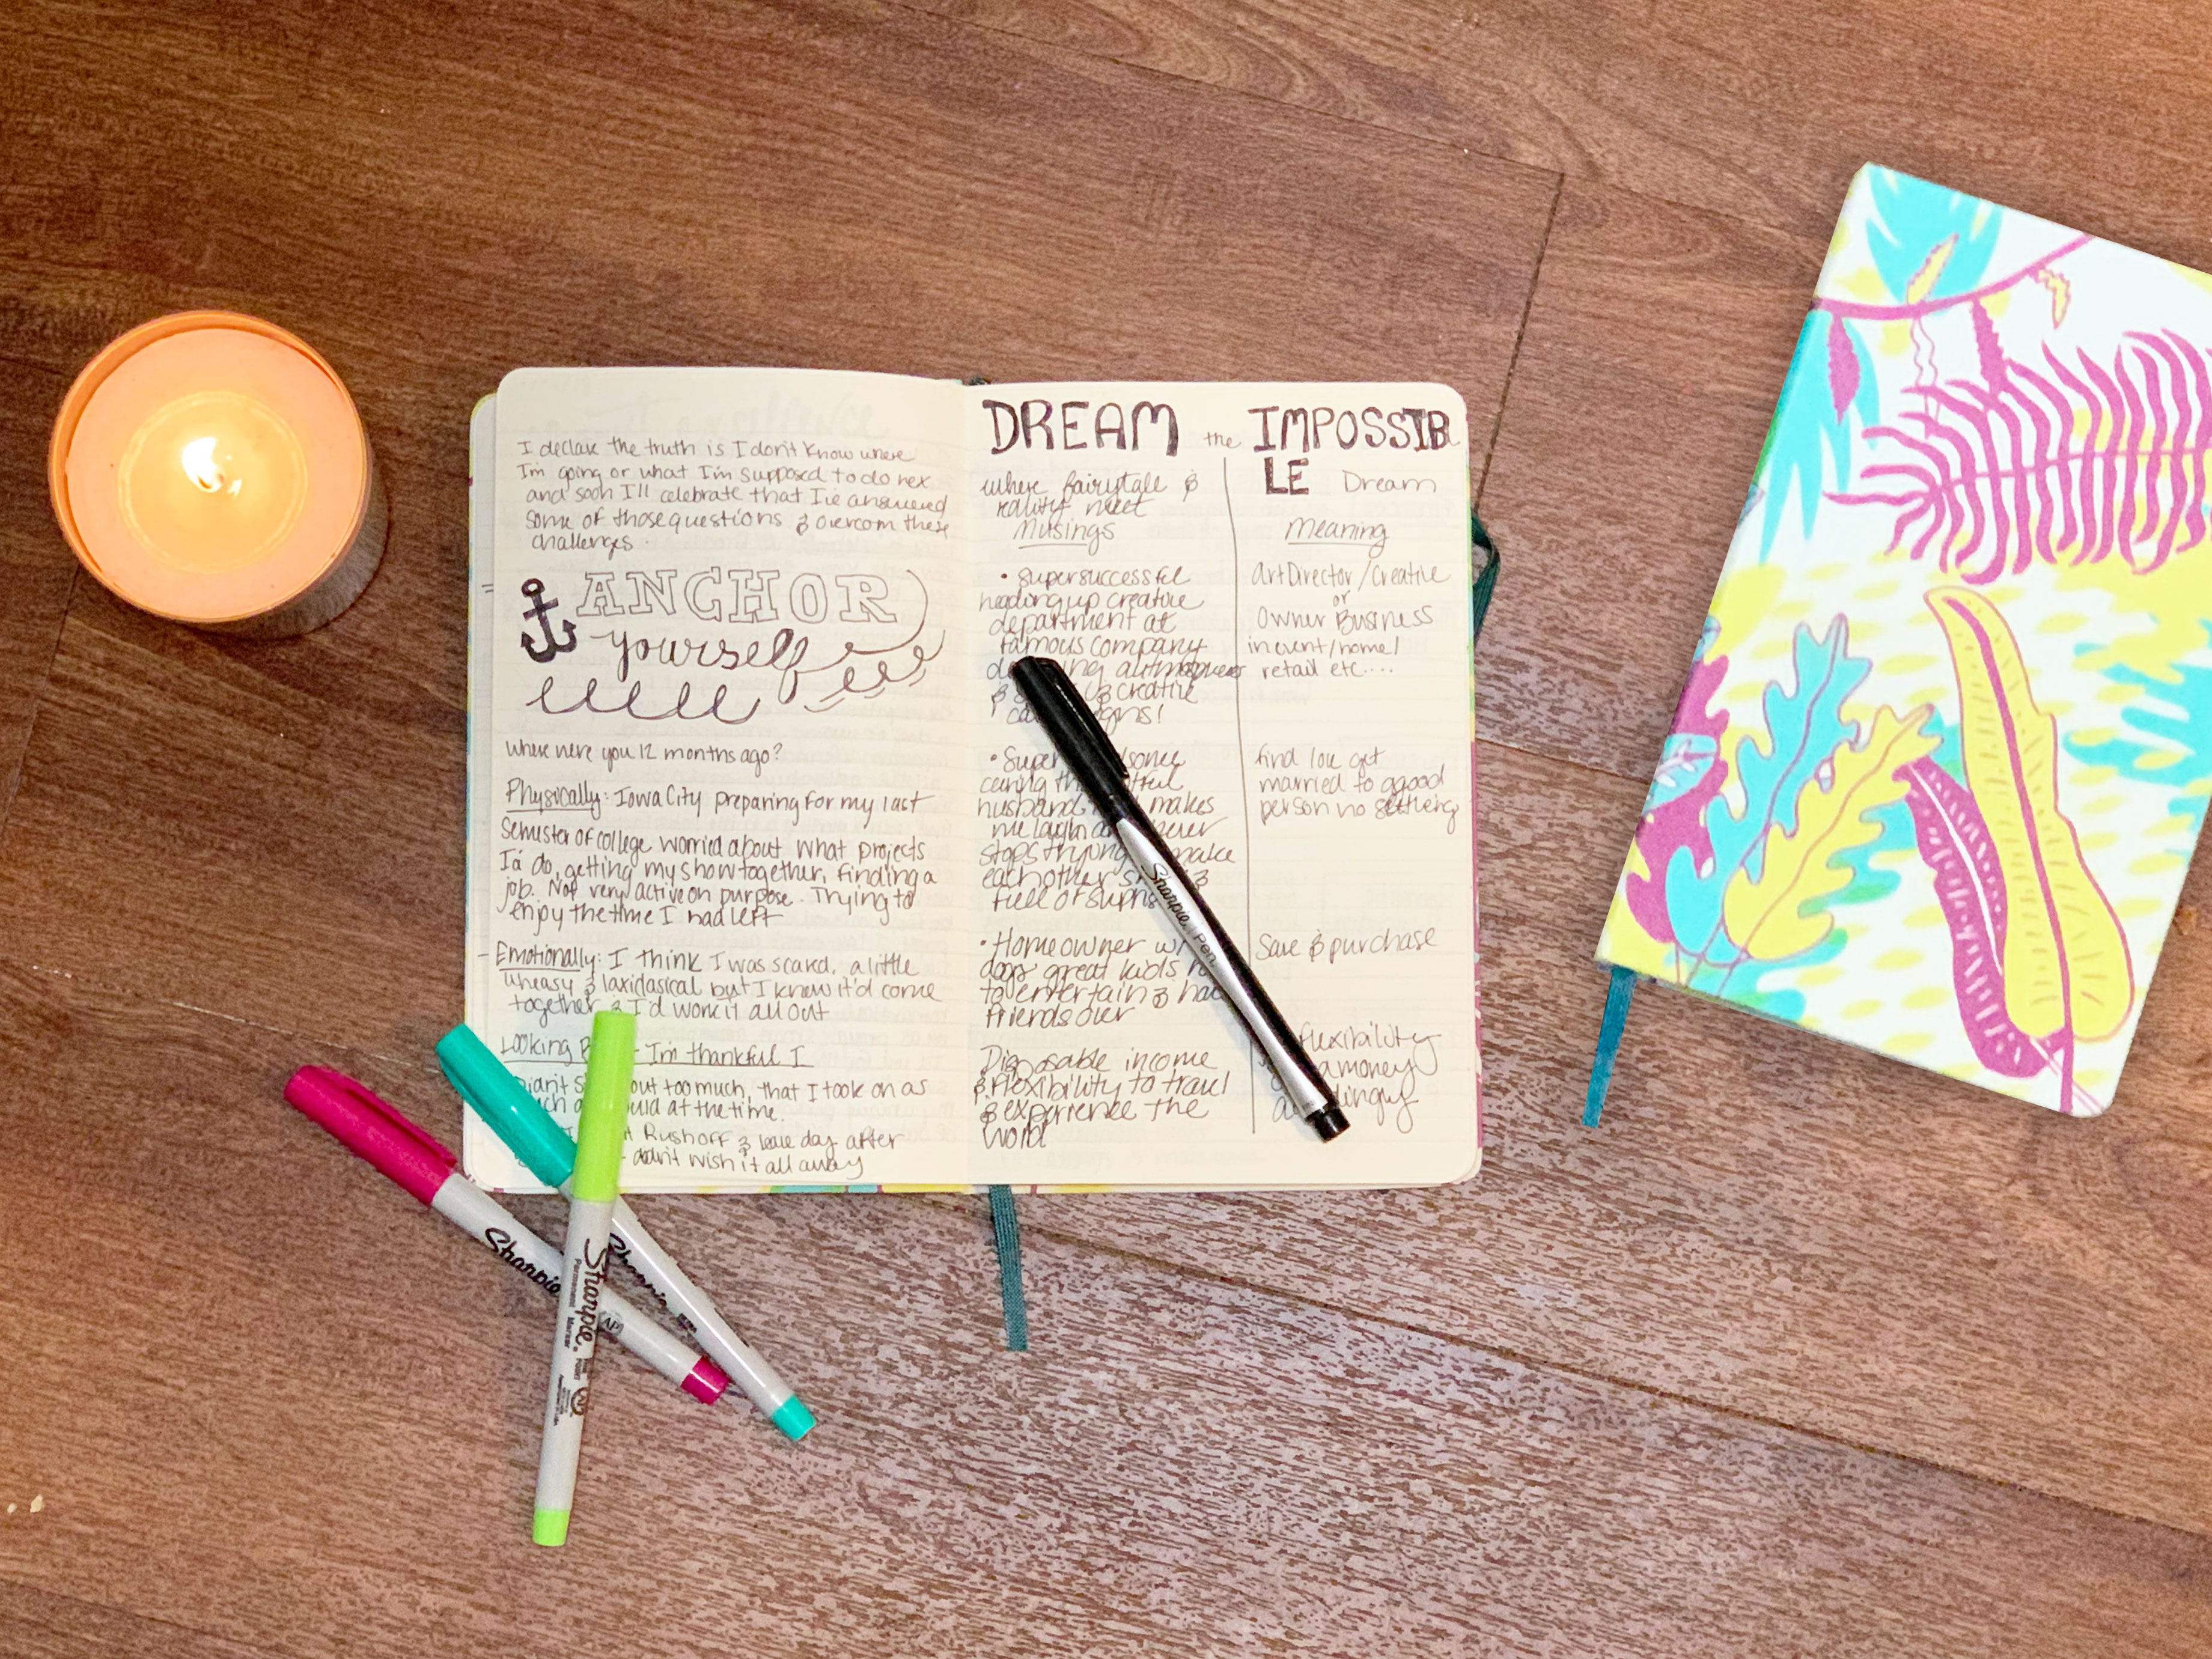 I declare the truth is I don't know where
I'm going or what I'm supposed to do nex
and soon I'll celebrate that I've answered
some of those questions & overcom these
challenges.
ANCHOR
yourself
where were you 12 months ago?
Physically: Iowa City preparing for my last
semester of college worried about what projects
I'd do, getting my show together, finding a
job. Not very active on purpose. Trying to
enjoy the time I had left
Emotionally: I think I was scared, a little
uneasy & but I knew it'd come
together & I'd work it all out
Looking - I'm thankful I
out too much, that I took on as
at the time.
Rushoff & leave day after
- didn't wish it all away
DREAM the IMPOSSIB
LE Dream
where fairytale &
reality meet
Musings
• super successful
heading up creative
department at
famous company
& creative
• Super
caring
husband makes
me laugh
stops trying make
each other &
full of
• Homeowner w/
dogs great kids
to entertain &
friends over
Disposable income
& flexibility to travel
& experience the
world
Meaning
Art Director/Creative
or
Owner Business
in event/home/
retail etc....
find love get
married to ggood
person no settling
Save & purchase
flexibility
money
Sharpie Pen
Sharpie
Sharpie
Sharpie.
Permanent Marker
AP